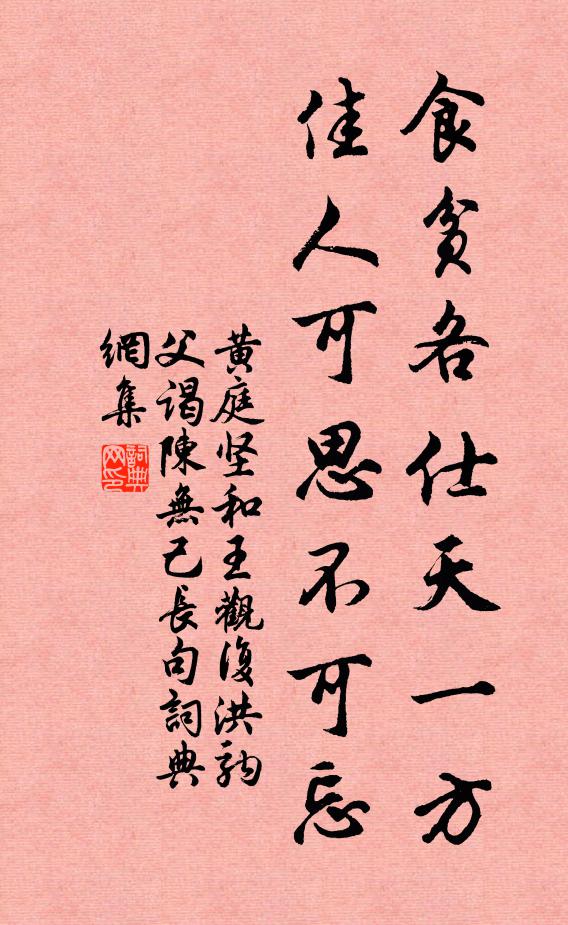 食貧各仕天一方
佳人可思不可忘
黄庭坚和王觀復洪駒
父謁陳無己長句詞典
網集
詞典
网印